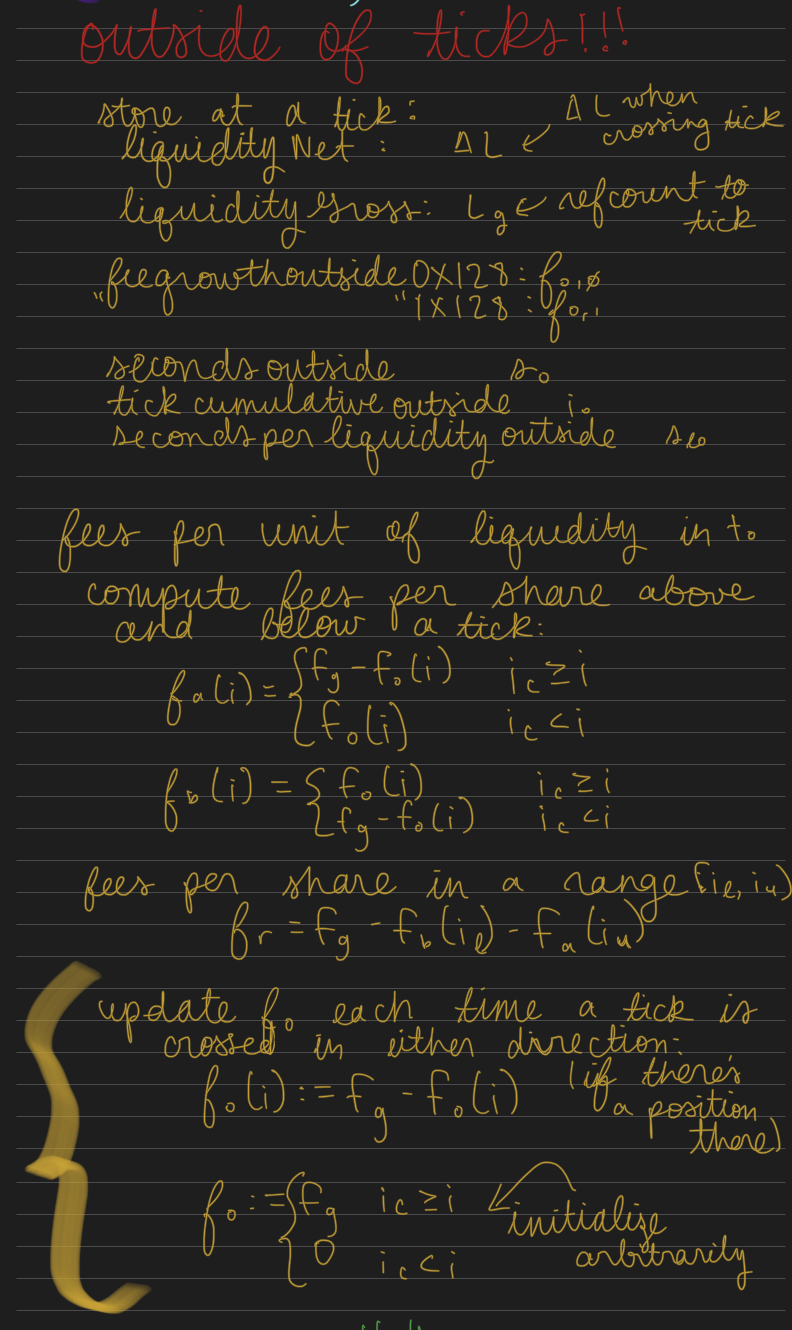 outside of ticks!!!
store at a tick:
liquidityNet : ΔL ← ΔL when crossing tick
liquidityGross: Lg ← refcount to tick
"feegrowthoutside0X128: fo,0
"1X128 : fo,1
seconds outside so
tick cumulative outside io
seconds per liquidity outside slo
fees per unit of liquidity in to
compute fees per share above
and below a tick:
fa(i) = { fg - fo(i) ic ≥ i
{ fo(i) ic < i
fb(i) = { fo(i) ic ≥ i
{ fg - fo(i) ic < i
fees per share in a range [il, iu)
fr = fg - fb(il) - fa(iu)
update fo each time a tick is
crossed in either direction:
fo(i) := fg - fo(i) (if there's
a position
there)
fo := { fg ic ≥ i ← initialize
{ 0 ic < i arbitrarily